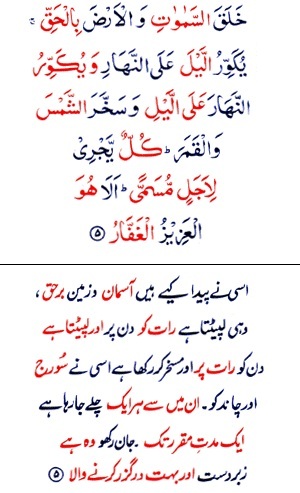 خَلَقَ السَّمٰوٰتِ وَ الْاَرْضَ بِالْحَقِّ ۚ
یُكَوِّرُ الَّیْلَ عَلَی النَّهَارِ وَ یُكَوِّرُ
النَّهَارَ عَلَی الَّیْلِ وَ سَخَّرَ الشَّمْسَ
وَ الْقَمَرَ ؕ كُلٌّ یَّجْرِیْ
لِاَجَلٍ مُّسَمًّی ؕ اَلَا هُوَ
الْعَزِیْزُ الْغَفَّارُ ۵
اسی نے پیدا کیے ہیں آسمان و زمین برحق ،
وہی لپیٹتا ہے رات کو دن پر اور لپیٹتا ہے
دن کو رات پر اور مسخر کر رکھا ہے اسی نے سُورج
اور چاند کو ۔ ان میں سے ہر ایک چلے جا رہا ہے
ایک مدتِ مقرر تک ۔ جان رکھو وہ ہے
زبردست اور بہت درگزر کرنے والا ۵